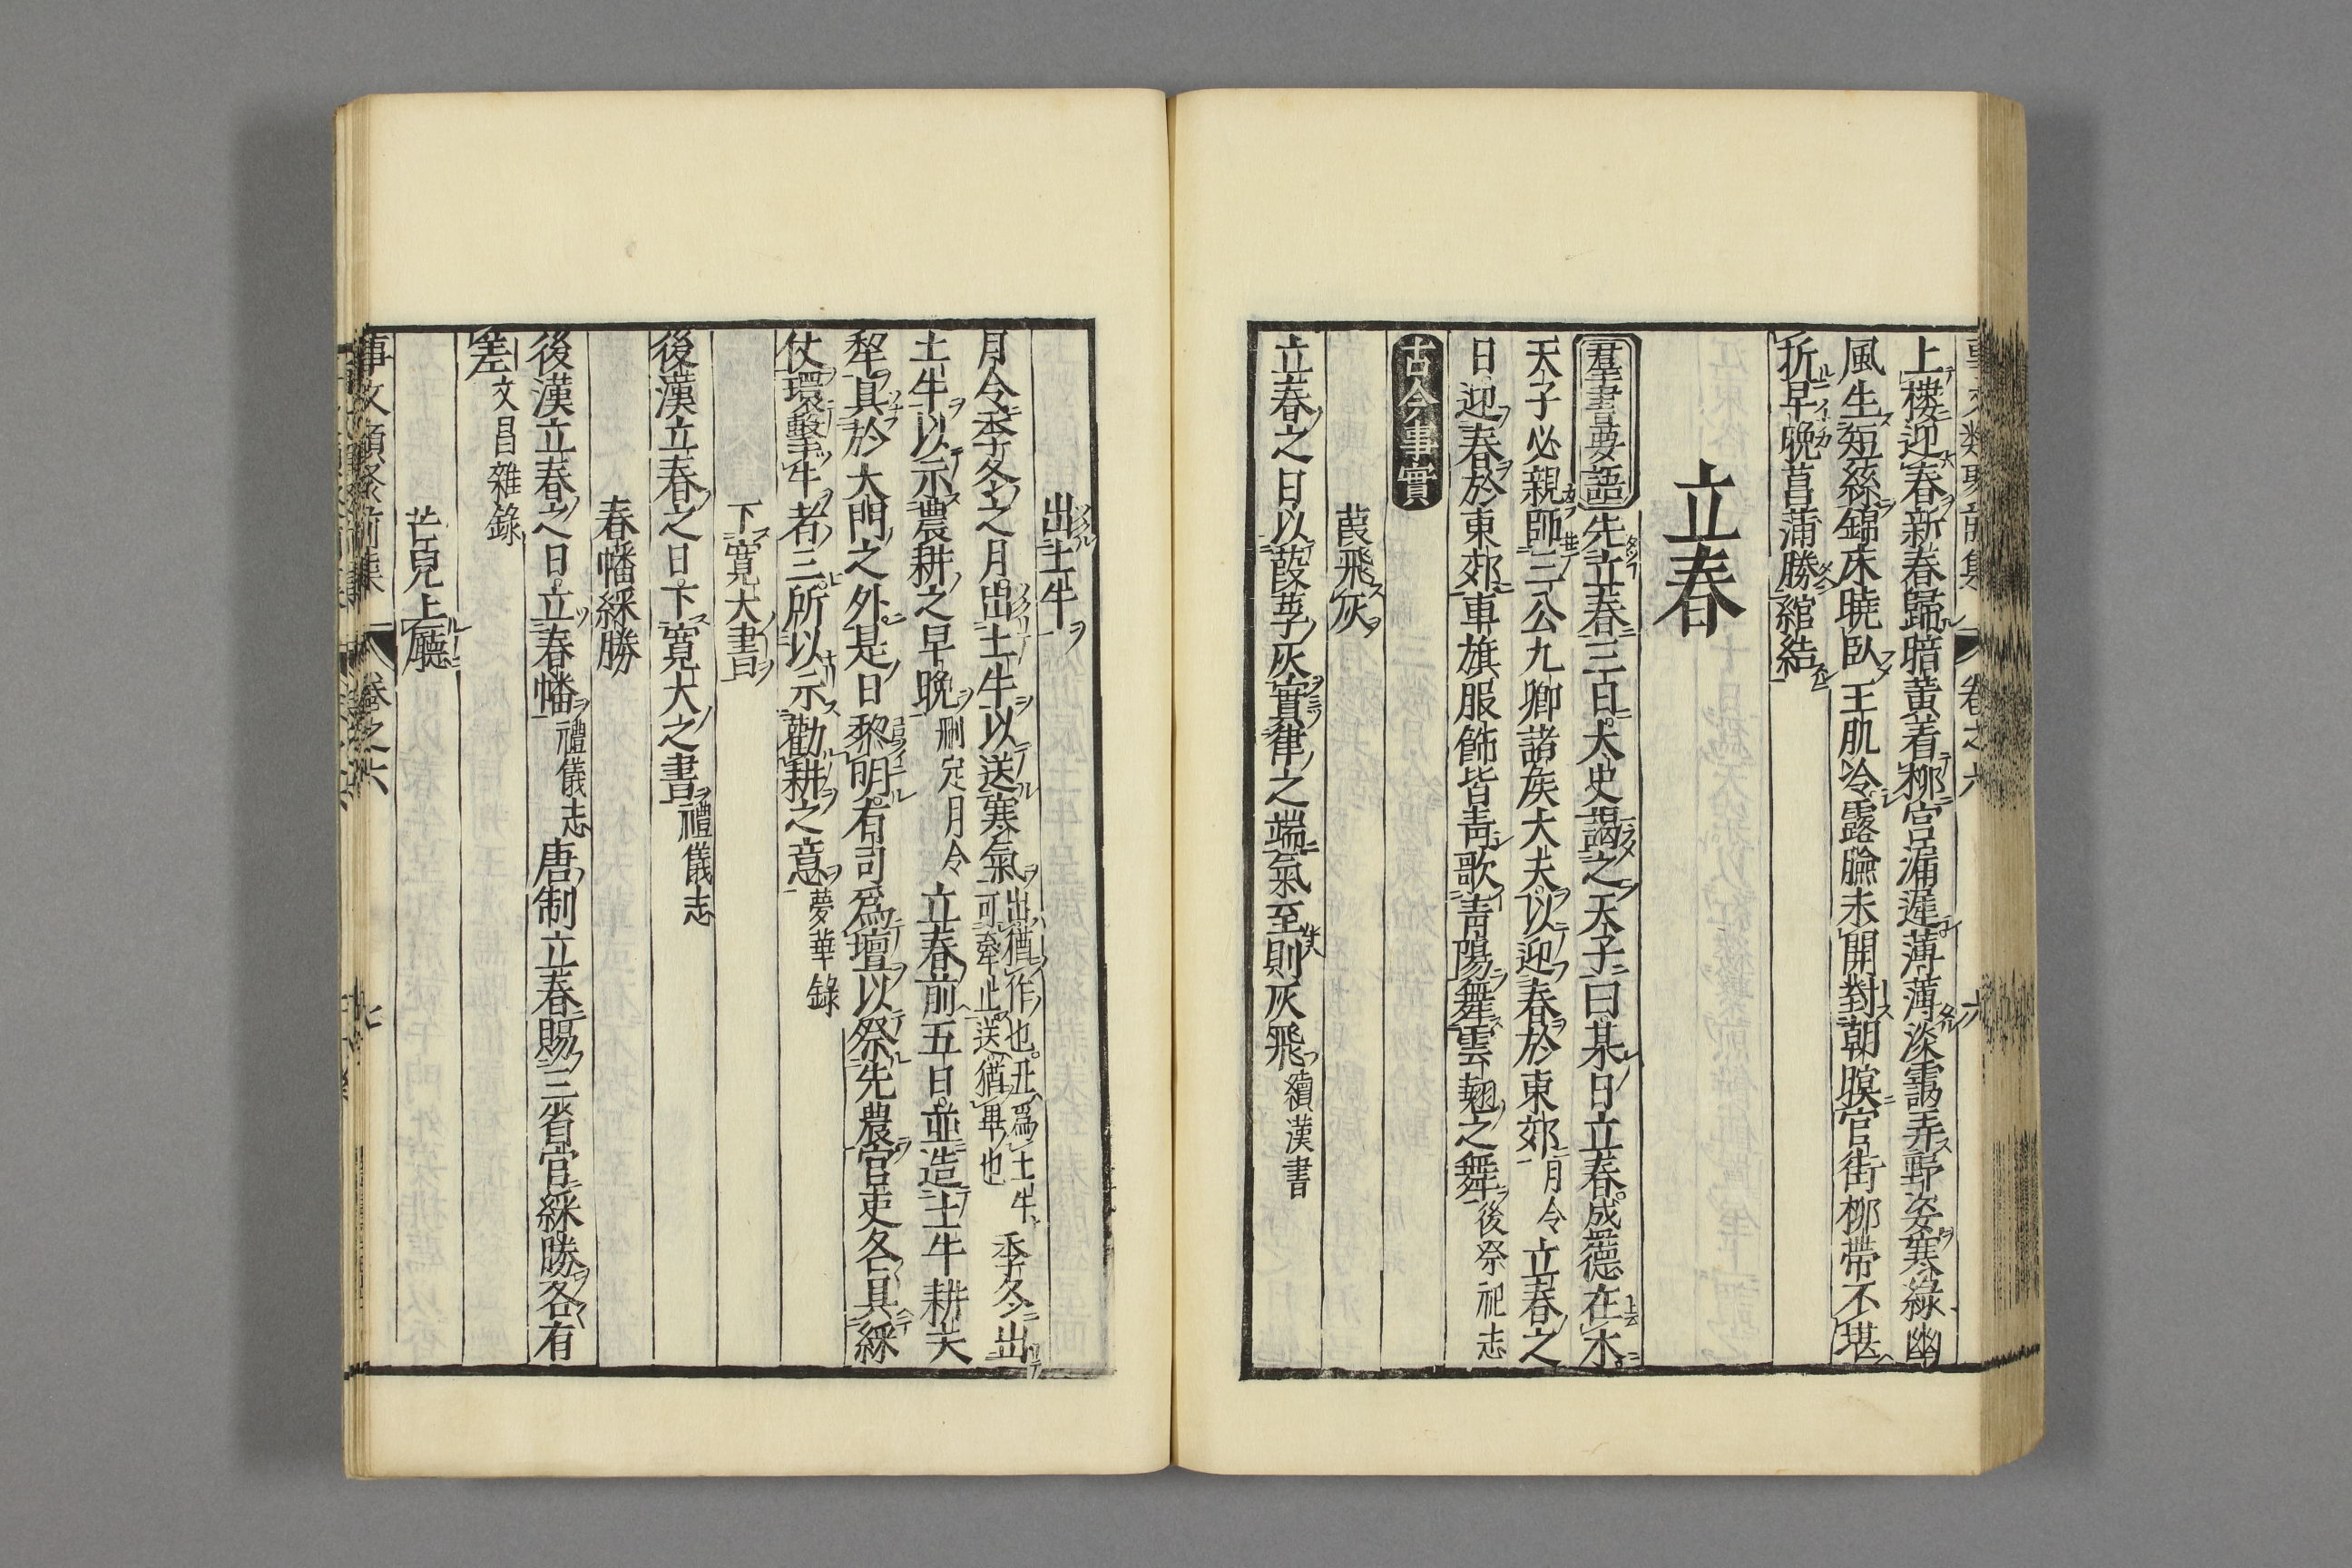 事文類聚前集 卷之六 六
上樓迎春新春歸暗黃着柳宮漏遲薄薄淡靄弄野姿寒綠幽
風生短絲錦床曉臥玉肌冷露臉未開對朝暝官街柳帶不堪
折早晚菖蒲勝綰結
立春
羣書要語 先立春三日大史謁之天子曰某日立春盛德在木
天子必親師三公九卿諸侯大夫以迎春於東郊月令立春之
日迎春於東郊車旗服飾皆青歌青陽舞雲翹之舞後祭祀志
古今事實
葭飛灰
立春之日以葭莩灰實律之端氣至則灰飛續漢書
出土牛
月令季冬之月出土牛以送寒氣出猶作也丑爲土牛可牽止送猶畢也季冬出
土牛以示農耕之早晚刪定月令立春前五日並造土牛耕夫
犂具於大門之外是日黎明有司爲壇以祭先農官吏各具綵
仗環擊牛者三所以示勸耕之意夢華錄
下寬大書
後漢立春之日下寬大之書禮儀志
春幡綵勝
後漢立春之日立春幡禮儀志唐制立春賜三省官綵勝各有
差文昌雜錄
芒兒上廳
事文類聚前集 卷之六 七